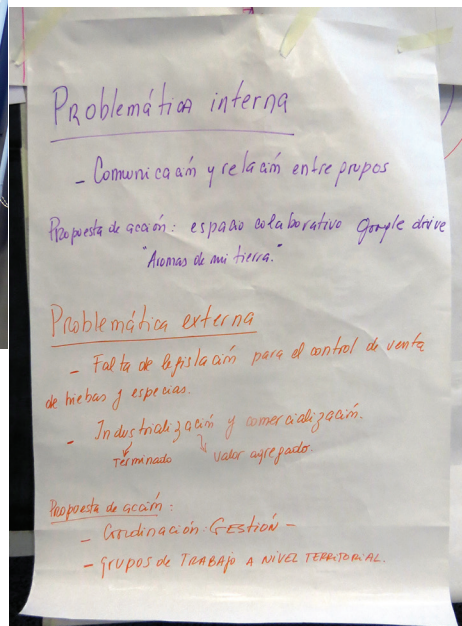 Problemática interna
- Comunicación y relación entre grupos
Propuesta de acción: espacio colaborativo google drive
"Aromas de mi tierra."
Problemática externa
- Falta de legislación para el control de venta
de hiebas y especias.
- Industrialización y comercialización.
Terminado valor agregado.
Propuesta de acción:
- Coordinación: GESTIÓN -
- GRUPOS de TRABAJO A NIVEL TERRITORIAL.